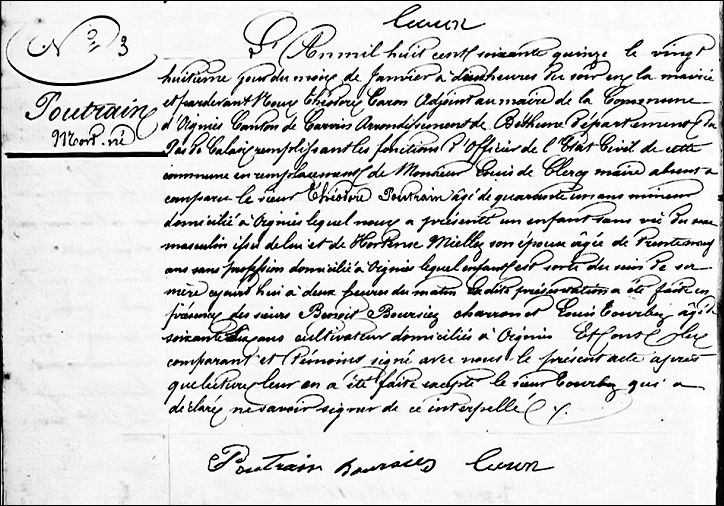 Caron
N° 3
Poutrain
Mort-né
L'An mil huit cent soixante quinze le vingt
huitième jour du mois de Janvier à deux heures du soir en la mairie
et pardevant Nous Théodore Caron Adjoint au maire de la Commune
d'Oignies Canton de Carvin Arrondissement de Béthune Département du
Pas de Calais remplissant les fonctions d'Officier de l'Etat Civil de cette
commune en remplacement de Monsieur Louis de Clercq maire absent a
comparu le sieur Théodore Poutrain âgé de quarante un ans mineur
domicilié à Oignies lequel nous a présenté un enfant sans vie du sexe
masculin issu de lui et de Hortense Miellez son épouse âgée de trente neuf
ans sans profession domicilié à Oignies lequel enfant est sorti du sein de sa
mère ce jourd'hui à deux heures du matin Ladite présentation a été faite en
présence des sieurs Benoit Boursiez charron et Louis Tourbez âgé de
soixante ans cultivateur domiciliés à Oignies Et ont les
comparant et témoins signé avec nous le présent acte après
que lecture leur en a été faite excepté le sieur Tourbez qui a
déclaré ne savoir signer de ce interpellé
Poutrain Boursiez Caron